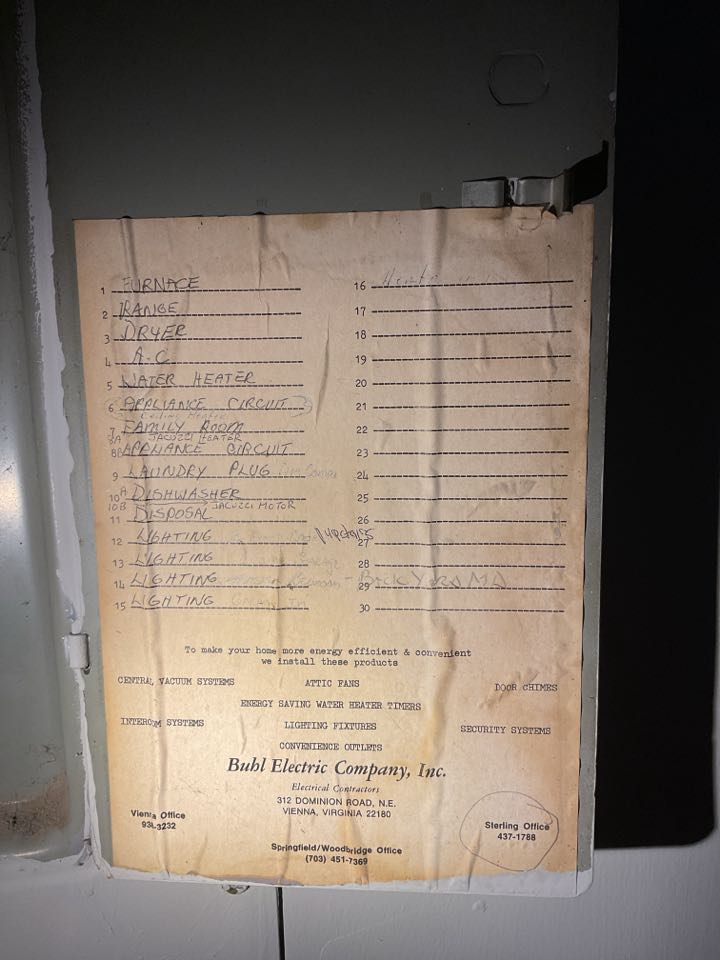 1 FURNACE
2 RANGE
3 DRYER
4 A-C
5 WATER HEATER
6 APPLIANCE CIRCUIT
7 FAMILY ROOM
8A JACUZZI HEATER
8B APPLIANCE CIRCUIT
9 LAUNDRY PLUG
10A DISHWASHER
10B JACUZZI MOTOR
11 DISPOSAL
12 LIGHTING
13 LIGHTING
14 LIGHTING
15 LIGHTING
16
17
18
19
20
21
22
23
24
25
26
27
28
29
30
To make your home more energy efficient & convenient
we install these products
CENTRAL VACUUM SYSTEMS ATTIC FANS DOOR CHIMES
ENERGY SAVING WATER HEATER TIMERS
INTERCOM SYSTEMS LIGHTING FIXTURES SECURITY SYSTEMS
CONVENIENCE OUTLETS
Buhl Electric Company, Inc.
Electrical Contractors
312 DOMINION ROAD, N.E.
VIENNA, VIRGINIA 22180
Vienna Office
938-3232
Sterling Office
437-1788
Springfield/Woodbridge Office
(703) 451-7369